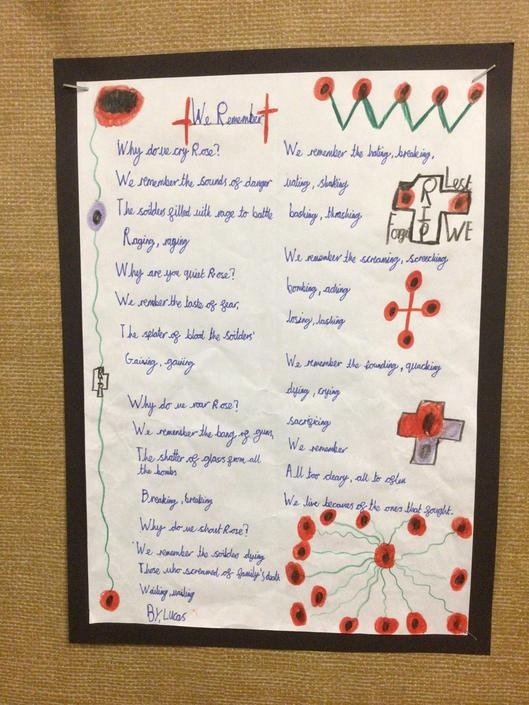 We Remember
Why do we cry Rose?
We remember the sounds of danger
The soilders filled with rage to battle
Raging, raging
Why are you quiet Rose?
We rember the taste of fear,
The splater of blood the soilders'
Gaining, gaining
Why do we roar Rose?
We remember the bang of guns,
The shatter of glass from all
the bombs
Breaking, breaking
Why do we shout Rose?
We remember the soilders dying
Those who screamed of family's death
Wailing, wailing
By, Lucas
We remember the hating, breaking,
shaking
bashing, thrashing
We remember the screaming, screeching
bombing, aching
losing, lashing
We remember the founding, quacking
dying, crying
sacrifising
We remember
All too cleary, all to often
We live becaues of the ones that fought.
Lest
RIP
WE